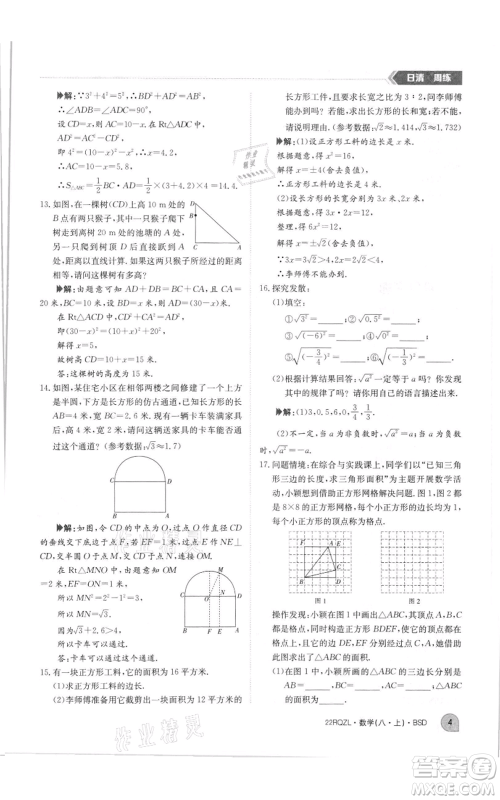 日清 周练
解:∵3²+4²=5²,∴BD²+AD²=AB²,
∴∠ADB=∠ADC=90°.
设CD=x,则AC=10-x.
在Rt△ADC中,CD²+AD²=AC²,
即4²+x²=(10-x)²,解得x=4.2,
∴AC=10-x=5.8,
∴S△ABC=1/2BC·AD=1/2×(3+4.2)×4=14.4.
13. 如图,在一棵树(AD)的10米高
B处有两只猴子,其中一只猴子
爬下树走到离树20米的池塘C
处,另一只猴子爬到树顶D后直接跃向池塘
的C处,如果两只猴子所经过的距离相等,
请问这棵树有多高?
解:由题意可知AD+DB=BC+AC,BC=
20米,AB=10米,设BD=x米,
则AD=(10+x)米,CD=(30-x)米.
在Rt△CDA中,CD²=CA²+AD²,
即(30-x)²=20²+(10+x)²,解得x=5,
故树高AD=10+x=15米.
答:这棵树的高度为15米.
14. 如图,某住宅小区在相邻两楼之间修建了一个上方
是半圆,下方是长方形的仿古通道,已知通道
AB=4米,CB=2.6米,现有一辆卡车装满家具
后,高4米,宽2米,请问这辆送家具的卡车能否
通过这个通道?(参考数据:√3≈1.7)
C
D
B
A
解:如图,令CD的中点为O,过CD的中点作CD的
垂线交下底边于点F,若EF=1米,过点E作EN⊥
CD交半圆于点M,连接OM.
在Rt△MNO中,由题意可知OM
=2米,EF=ON=1米,
所以MN²=2²-1²=3,
所以MN=√3米.
因为√3+2.6>4,
所以卡车可以通过.
答:卡车可以通过这个通道.
15. 有一块正方形工料,它的面积为16平方米.
(1)求正方形工料的边长;
(2)李师傅准备用它截剪出一块面积为12平方米的
长方形工件,且要求长宽之比为3∶2,问李师傅
能办到吗?若能,求出长方形的长和宽;若不能,
请说明理由.(参考数据:√2≈1.414,√3≈1.732)
解:(1)设正方形工料的边长为x米,
根据题意,得x²=16,
解得x=±4(舍去负值).
∴正方形工料的边长为4米.
(2)设长方形的长、宽分别为3x米、2x米,
根据题意,得3x·2x=12,
解得x=±√2(舍去负值),
∵3x=3√2>4,2x=2√2<4,
∴李师傅不能办到.
16. 探究发散:
(1)填空:
①√3²=______;②√0.5²=______;
③√(-6)²=______;④√(-3/4)²=______;
⑤√(1/3)²=______.
(2)根据计算结果回答:√a²一定等于a吗?你发现其
中的规律了吗?请你用自己的语言描述出来.
解:(1)3,0.5,6,3/4,1/3.
(2)不一定,当a为非负数时,√a²=a;当a为负数
时,√a²=-a.
17. 问题情境:在综合与实践课上,同学们以“已知三角形
三边的长度,求三角形面积”为主题开展数学活
动,小颖想到借助正方形网格解决问题.图1,图2都
是8×8的正方形网格,每个小正方形的边长均为1,
每个小正方形的顶点称为格点.
F
A
E
C
B
D
图1
图2
操作发现:小颖在图1中画出△ABC,其顶点A,B,
C都是格点,同时构造正方形BDEF,使它的顶点都
在格点上,且它的边DE,EF分别经过点C,A,她借
助此图求出了△ABC的面积.
(1)在图1中,小颖所画的△ABC的三边长分别是
22RQZL·数学(八·上)·BSD
4
作业精灵
作业精灵